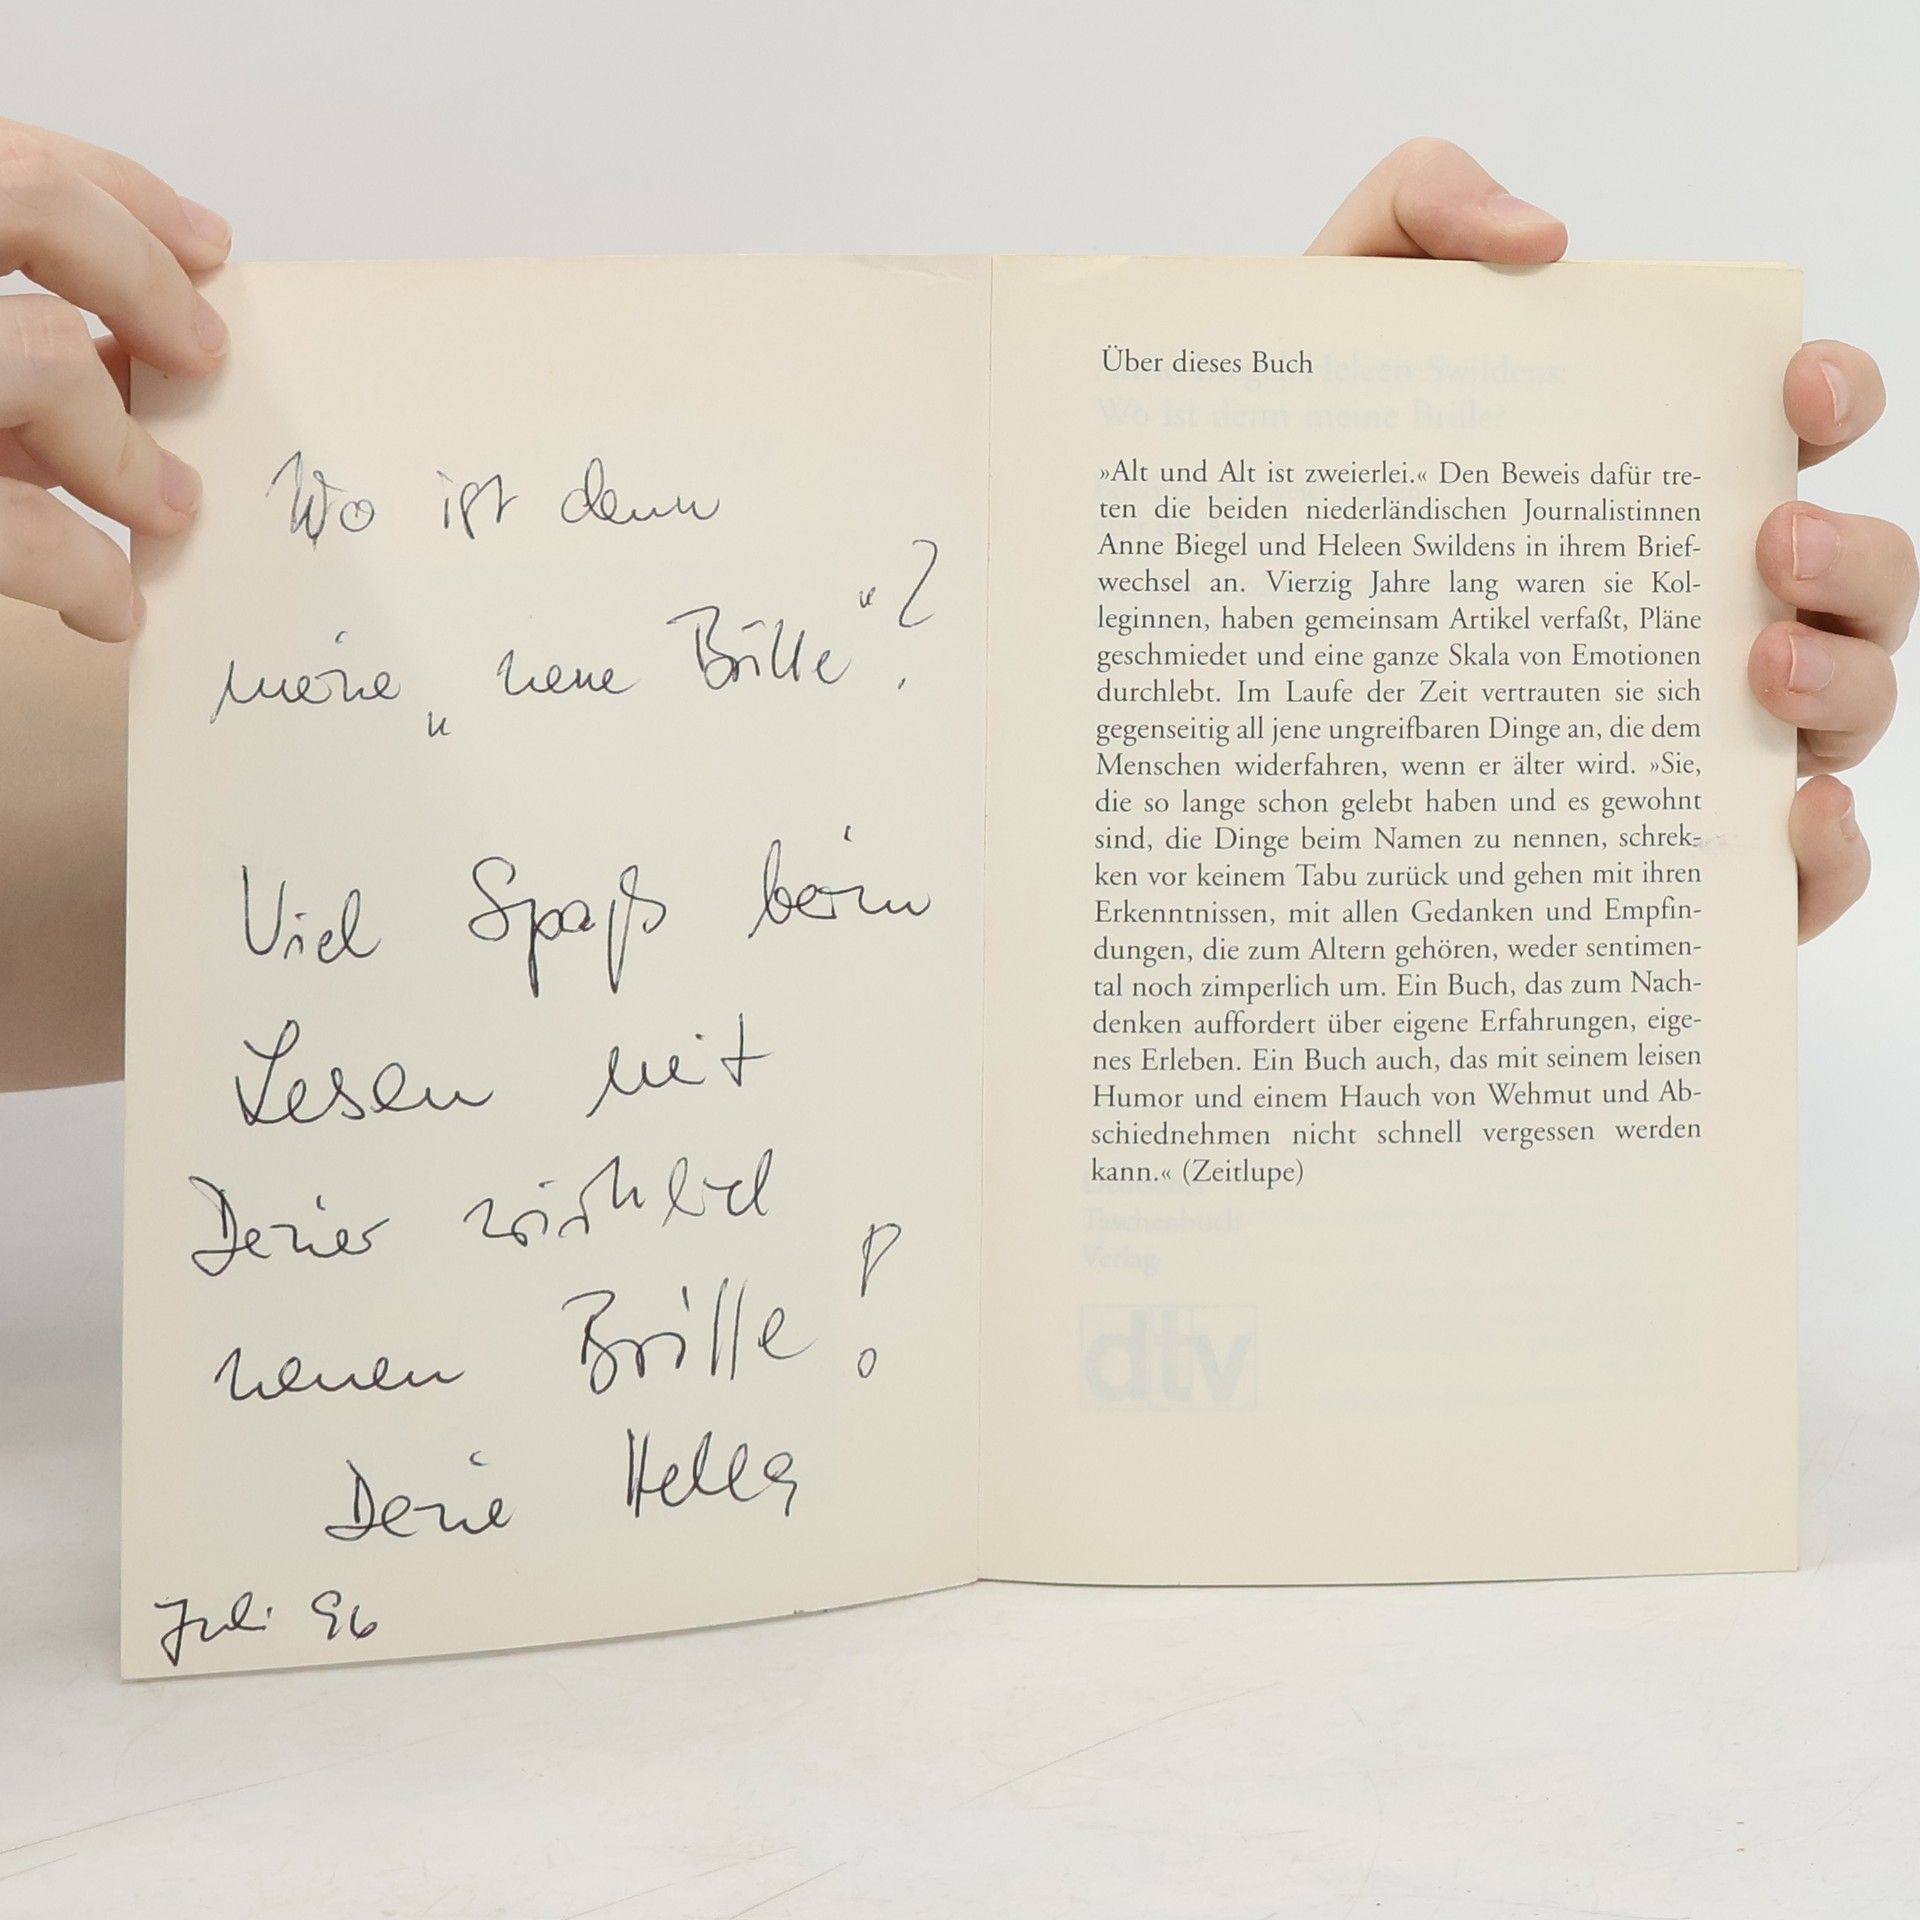 Wo ist denn
meine „neue Brille“?
Viel Spaß beim
Lesen mit
Deiner wirklich
neuen Brille!
Deine Hella
Juli 96
Über dieses Buch
»Alt und Alt ist zweierlei.« Den Beweis dafür tre-
ten die beiden niederländischen Journalistinnen
Anne Biegel und Heleen Swildens in ihrem Brief-
wechsel an. Vierzig Jahre lang waren sie Kol-
leginnen, haben gemeinsam Artikel verfaßt, Pläne
geschmiedet und eine ganze Skala von Emotionen
durchlebt. Im Laufe der Zeit vertrauten sie sich
gegenseitig all jene ungreifbaren Dinge an, die dem
Menschen widerfahren, wenn er älter wird. »Sie,
die so lange schon gelebt haben und es gewohnt
sind, die Dinge beim Namen zu nennen, schrek-
ken vor keinem Tabu zurück und gehen mit ihren
Erkenntnissen, mit allen Gedanken und Empfin-
dungen, die zum Altern gehören, weder sentimen-
tal noch zimperlich um. Ein Buch, das zum Nach-
denken auffordert über eigene Erfahrungen, eige-
nes Erleben. Ein Buch auch, das mit seinem leisen
Humor und einem Hauch von Wehmut und Ab-
schiednehmen nicht schnell vergessen werden
kann.« (Zeitlupe)
Taschenbuch
Verlag
dtv